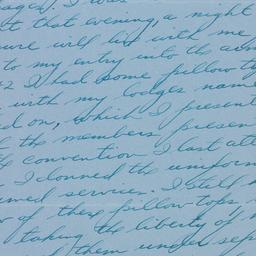 ages). I was
t that evening, a night
ure will live with me
to my entry into the arm
2 I had some pillow ty
with my lodges name
d on, which I present
t the members presen
e convention I last att
I donned the uniform
med service. I still h
w of these pillow tops,
taking the liberty of m
d them under sep